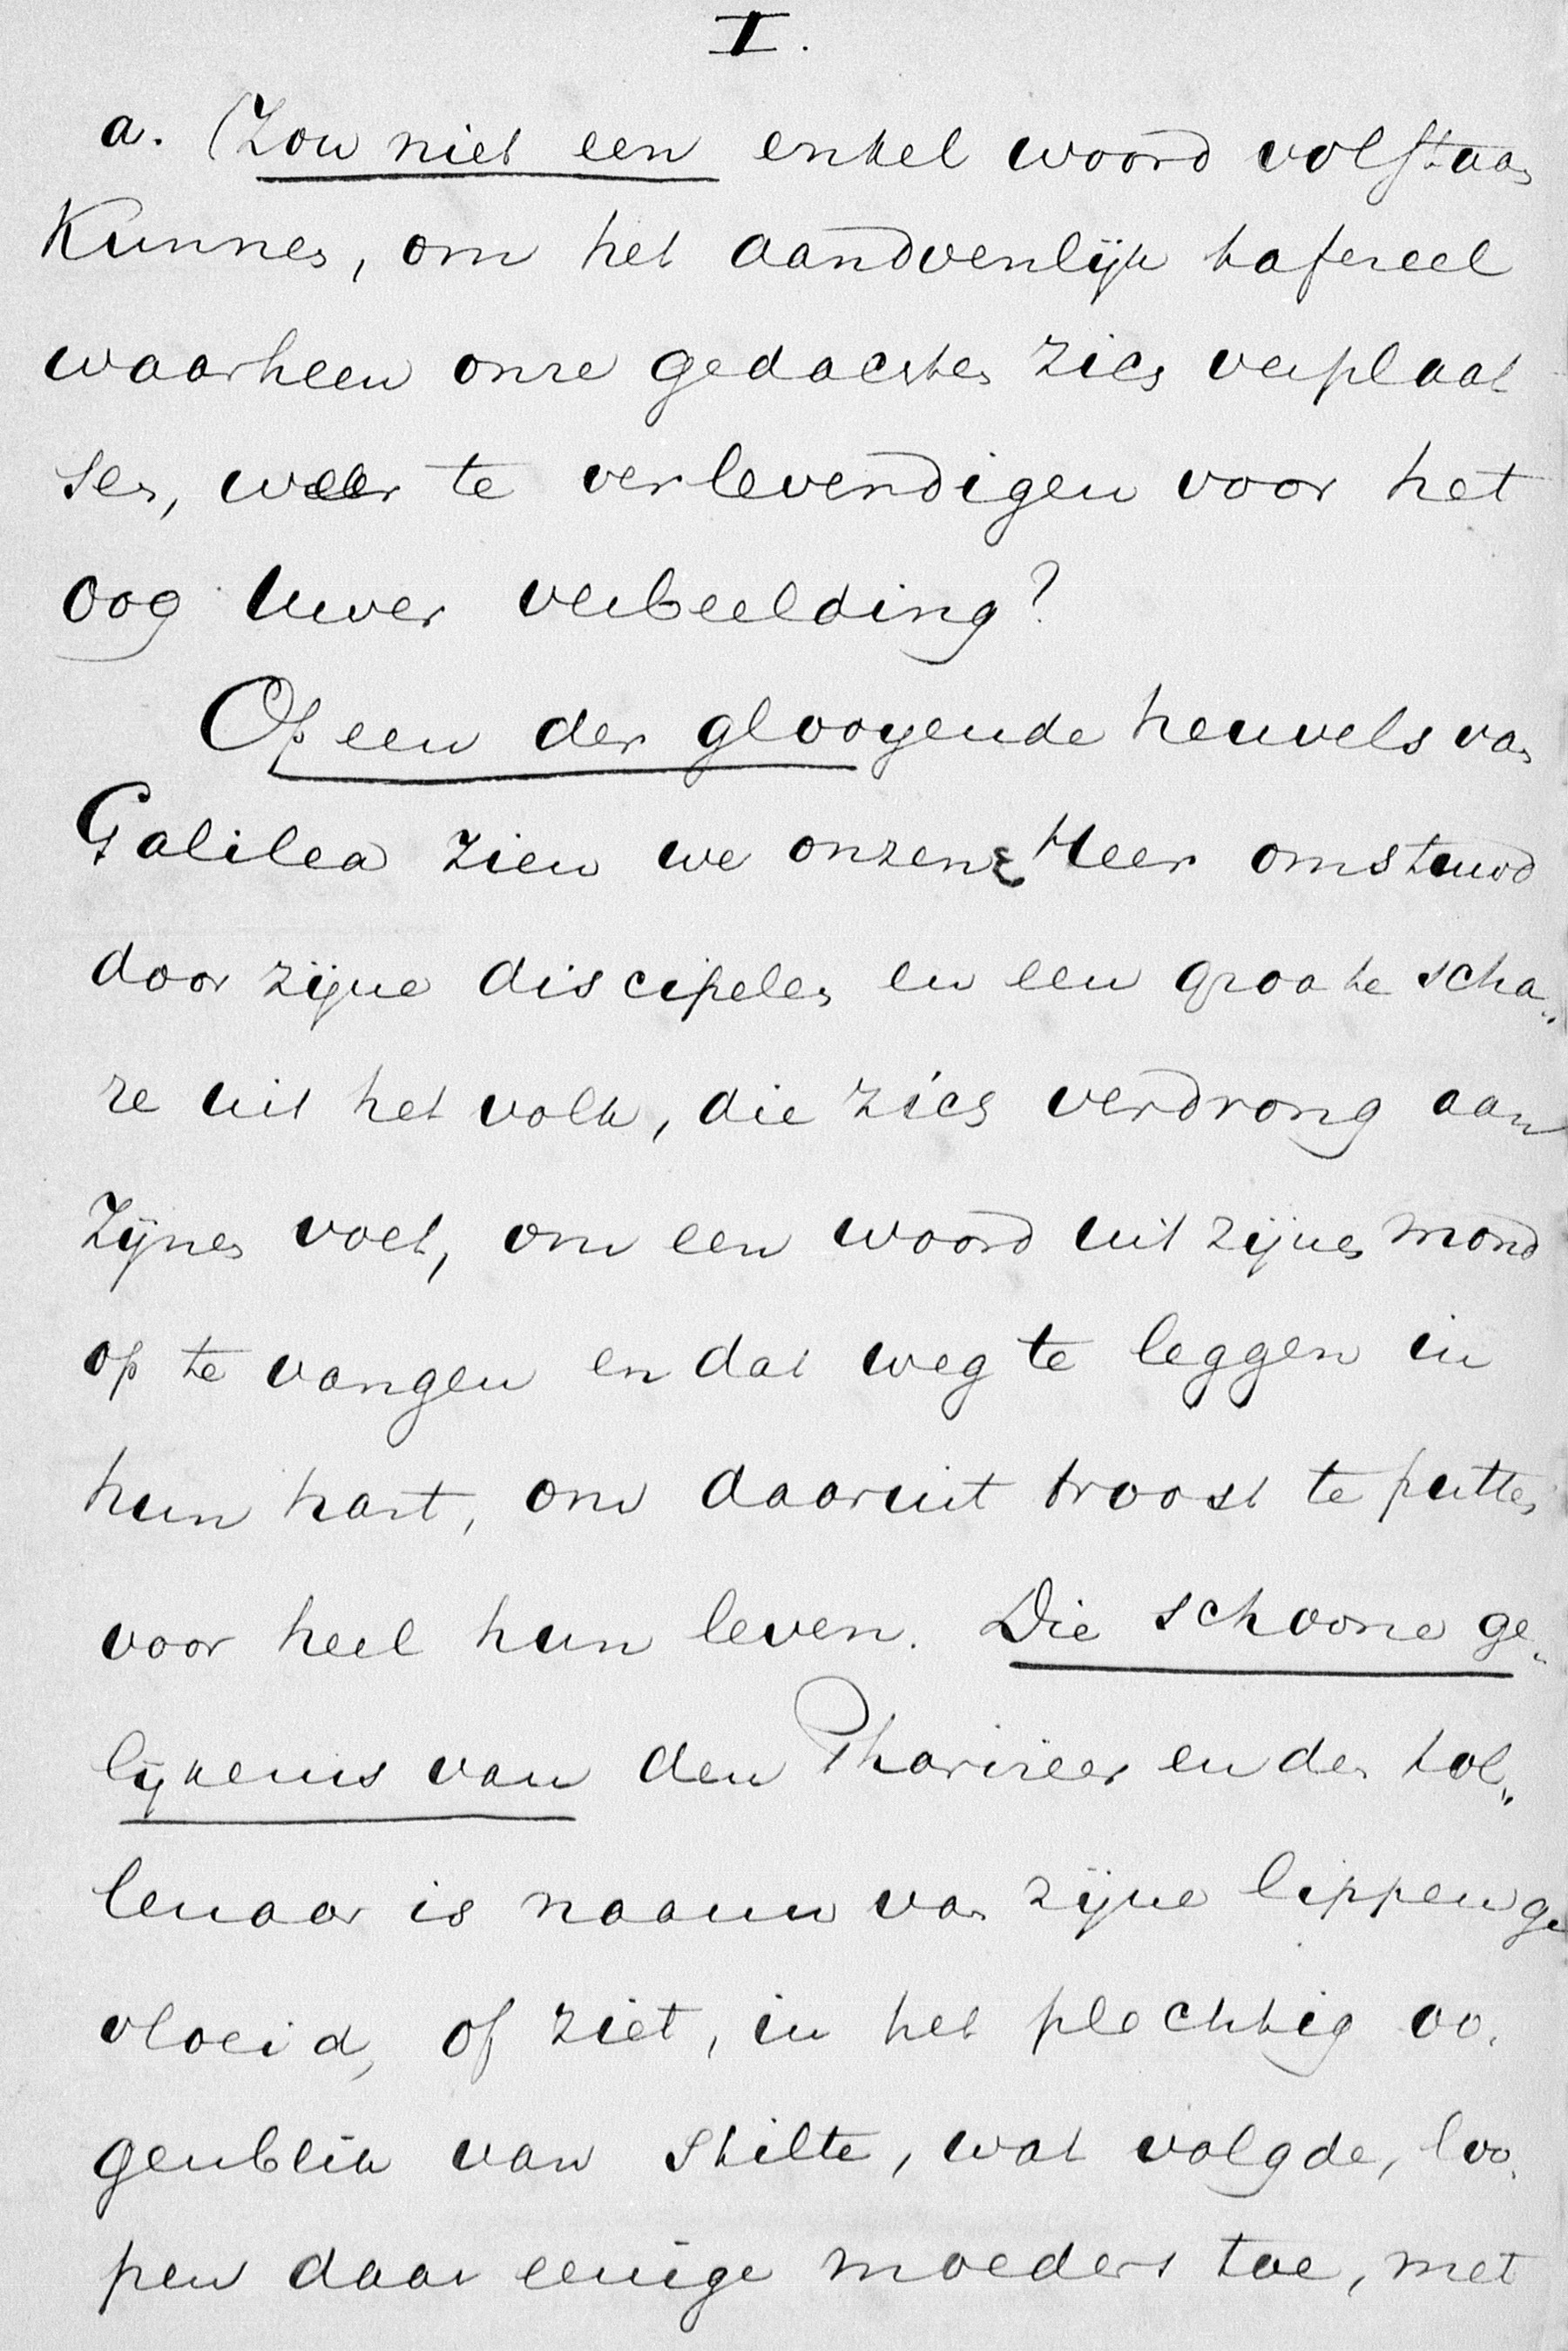 I.
a. (Zou niet een enkel woord volstaan
Kunnen, om het aandoenlijk tafereel
waarheen onze gedachten zich verplaat
sen, weer te verlevendigen voor het
oog uwer verbeelding?
Op een der glooyende heuvels van
Galilea zien we onzen Heer omstuwd
door zijne discipelen en een groote scha„
re uit het volk, die zich verdrong aan
Zijnen voet, om een woord uit zijnen mond
op te vangen en dat weg te leggen in
hun hart, om daaruit troost te putten
voor heel hun leven. Die schoone ge„
lijkenis van den Pharizeer en den tol„
lenaar is naauw van zijne lippen ge
vloeid, of ziet, in het plechtig oo„
genblik van stilte, wat volgde, loo„
pen daar eenige moeders toe, met